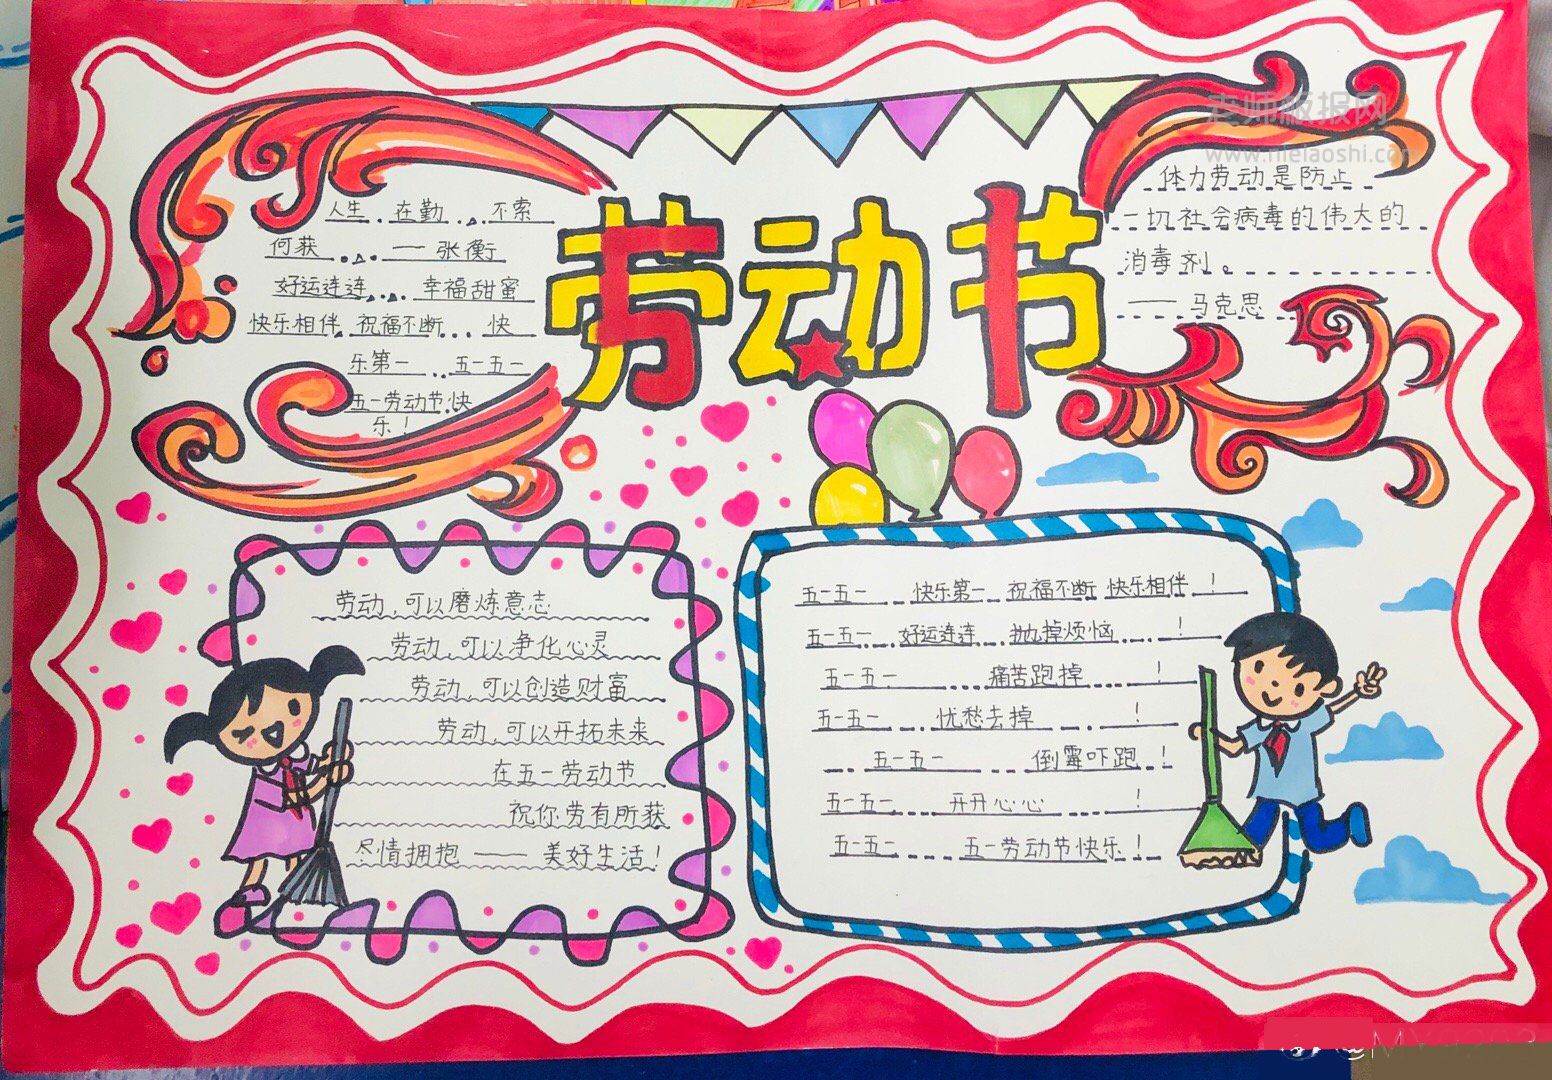 老师板报网
人生 在勤 不索
何获 —— 张衡
好运连连 幸福甜蜜
快乐相伴 祝福不断 快
乐第一 五一五一
五一劳动节快
乐！
劳动节
体力劳动是防止
一切社会病毒的伟大的
消毒剂。
—— 马克思
劳动，可以磨炼意志
劳动，可以净化心灵
劳动，可以创造财富
劳动，可以开拓未来
在五一劳动节
祝你劳有所获
尽情拥抱 —— 美好生活！
五一五一 快乐第一 祝福不断 快乐相伴 ！
五一五一 好运连连 抛掉烦恼 ！
五一五一 痛苦跑掉 ！
五一五一 忧愁去掉 ！
五一五一 倒霉吓跑 ！
五一五一 开开心心 ！
五一五一 五一劳动节快乐！